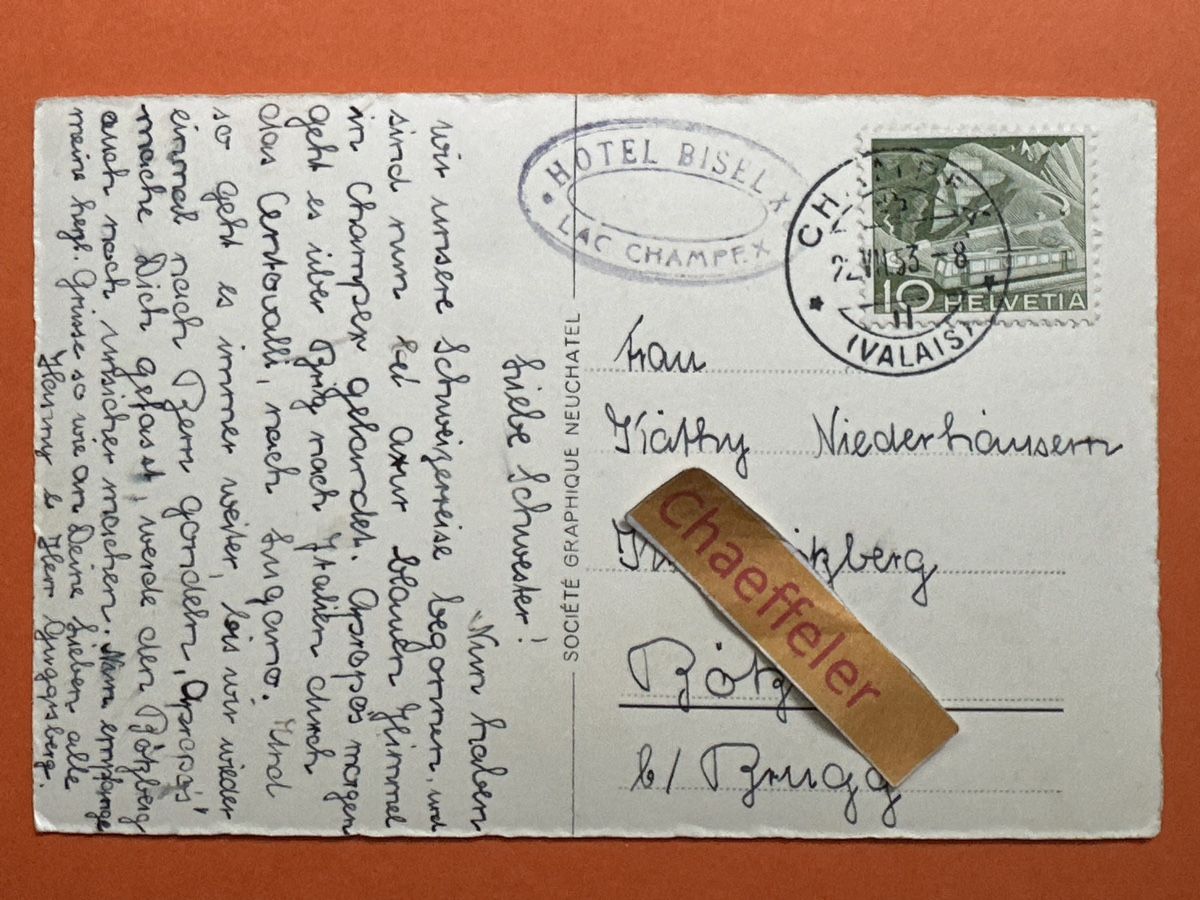 Liebe Schwester!
Nun haben
wir unsere Schweizerreise begonnen, und
sind nun bei azur blauen Himmel
in Champex gelandet. Apropós morgen
geht es über Brig nach Italien durch
das Centovalli, nach Lugano. Und
so geht es immer weiter, bis wir wieder
einmal nach Bern gondeln, Apropós'
mache Dich gefasst, werde den Bötzberg
auch noch unsicher machen. Nun empfange
meine herzl. Grüsse so wie an Deine Lieben alle
Hanny &
Herr Guggisberg.
HOTEL BISELX
LAC CHAMPEX
CHAMPEX
VII 53 - 8
11
(VALAIS)
10 HELVETIA
SOCIÉTÉ GRAPHIQUE NEUCHATEL
Frau
Käthy Niederhäusern
Bötz
b/ Brugg
Chaeffeler